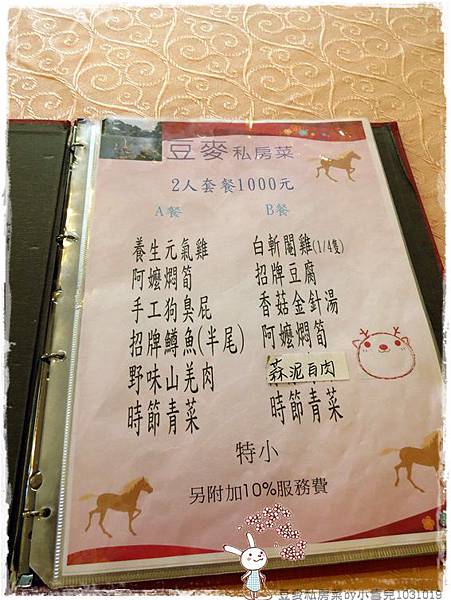 豆麥私房菜
2人套餐1000元
A餐
養生元氣雞
阿嬤燜筍
手工狗臭屁
招牌鱒魚(半尾)
野味山羌肉
時節青菜
B餐
白斬閹雞(1/4隻)
招牌豆腐
香菇金針湯
阿嬤燜筍
蒜泥白肉
時節青菜
特小
另附加10%服務費
豆麥私房菜by小雪兒1031019